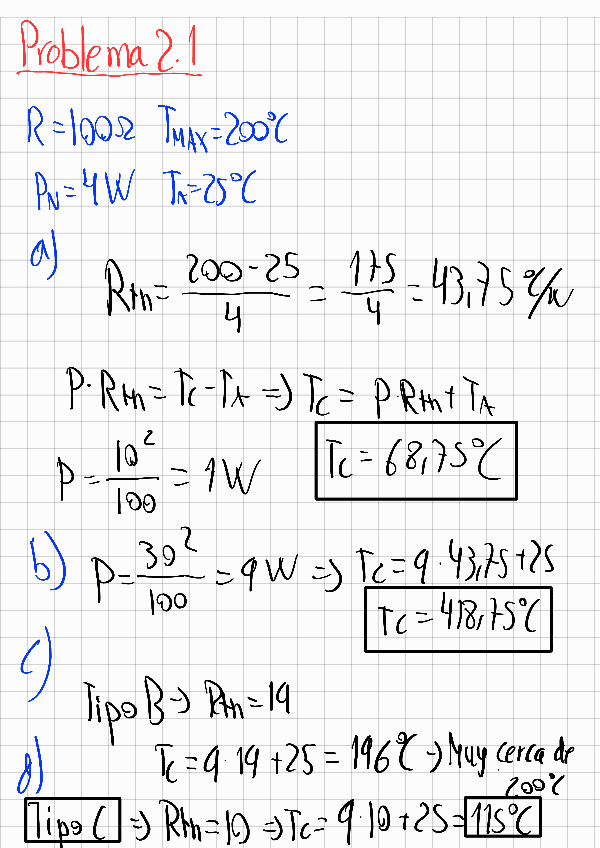 Problema 2.1
R=100Ω T_MAX=200°C
P_N=4W T_A=25°C
a)
R_th = (200-25)/4 = 175/4 = 43,75 °C/W
P·R_th = T_C-T_A => T_C = P·R_th+T_A
P = 10²/100 = 1W
T_C = 68,75°C
b) P = 30²/100 = 9W => T_C = 9·43,75+25
T_C = 418,75°C
c)
Tipo B => R_th = 19
T_C = 9·19+25 = 196°C → Muy cerca de
200°C
d)
Tipo C => R_th = 10 => T_C = 9·10+25 = 115°C